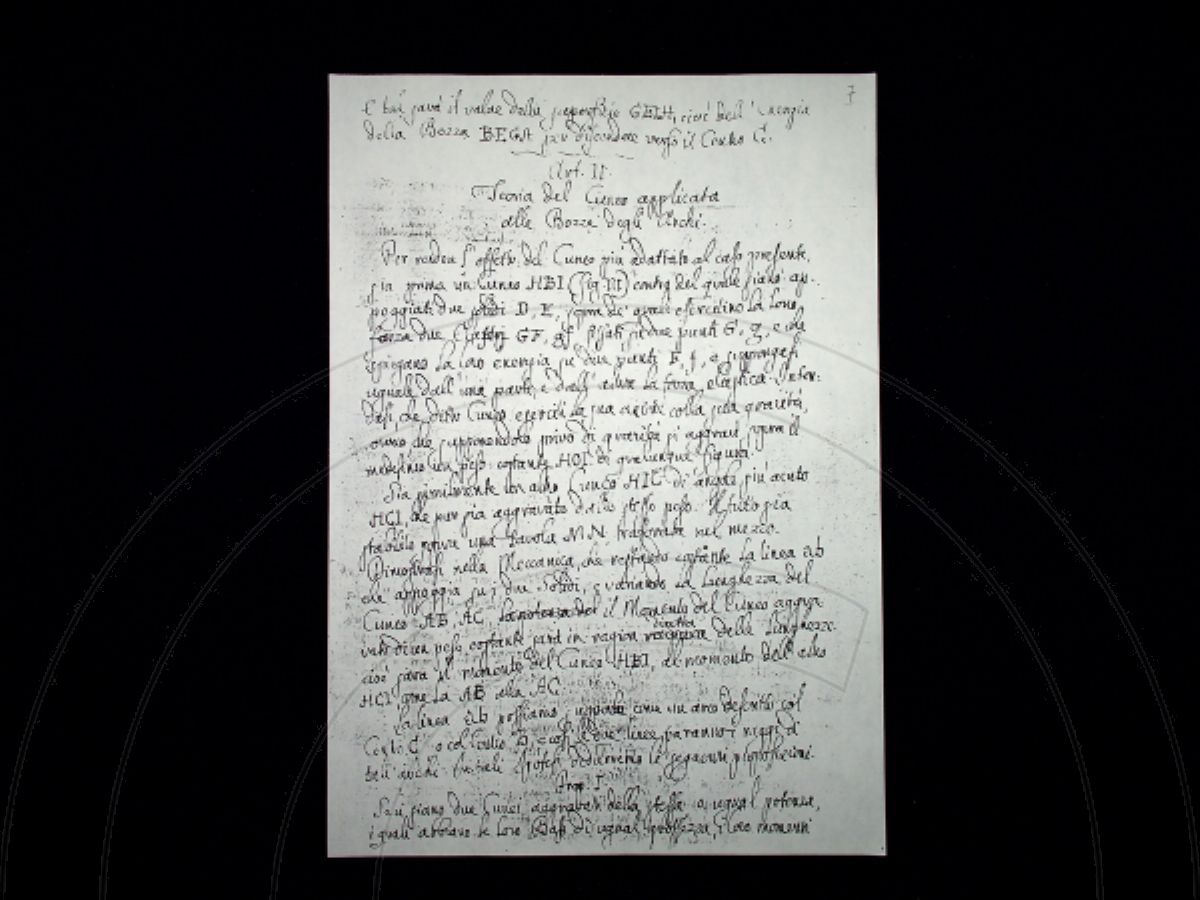 7
E tal sarà il valore della superficie GELH, cioè dell'Energia
della Bozza BEGA per discendere verso il Centro C.
Art. II.
Teoria del Cuneo applicata
alle Bozze degli Archi.
Per render l'effetto del Cuneo più adattato al caso presente,
sia prima un Cuneo HBI (fig. III) contro del quale siano ap-
poggiati due solidi D, E, sopra de' quali esercitino la loro
forza due Elastri GF, gf, fissati ne due punti G, g, e che
spiegano la loro energia su due punti F, f, e suppongasi
uguale dall'una parte, e dall'altra la forza elastica. Inten-
dasi, che detto Cuneo eserciti la sua attività colla sua gravità,
ovvero che supponendolo privo di gravità si aggravi sopra il
medesimo un peso costante HOI di qualunque figura.
Sia similmente un altro Cuneo HIC di angolo più acuto
HCI, che pur sia aggravato dallo stesso peso. Il tutto sia
stabilito sopra una tavola MN traforata nel mezzo.
Dimostrasi nella Meccanica, che restando costante la linea ab
che appoggia su i due Solidi, e variando la lunghezza del
Cuneo AB, AC, il Momento del Cuneo aggra-
vato di un peso costante sarà in ragion diretta delle lunghezze
cioè sarà il momento del Cuneo HBI, al momento dell'altro
HCI, come la AB alla AC.
La linea ab possiamo come un arco descritto col
Centro C, o col Centro B, e così le due linee saranno i raggi di
tali archi. In tali ipotesi dedurremo le seguenti proposizioni.
Prop. I.
Se vi siano due Cunei aggravati della stessa o ugual potenza,
i quali abbiano le loro Basi di ugual grossezza, i loro momenti